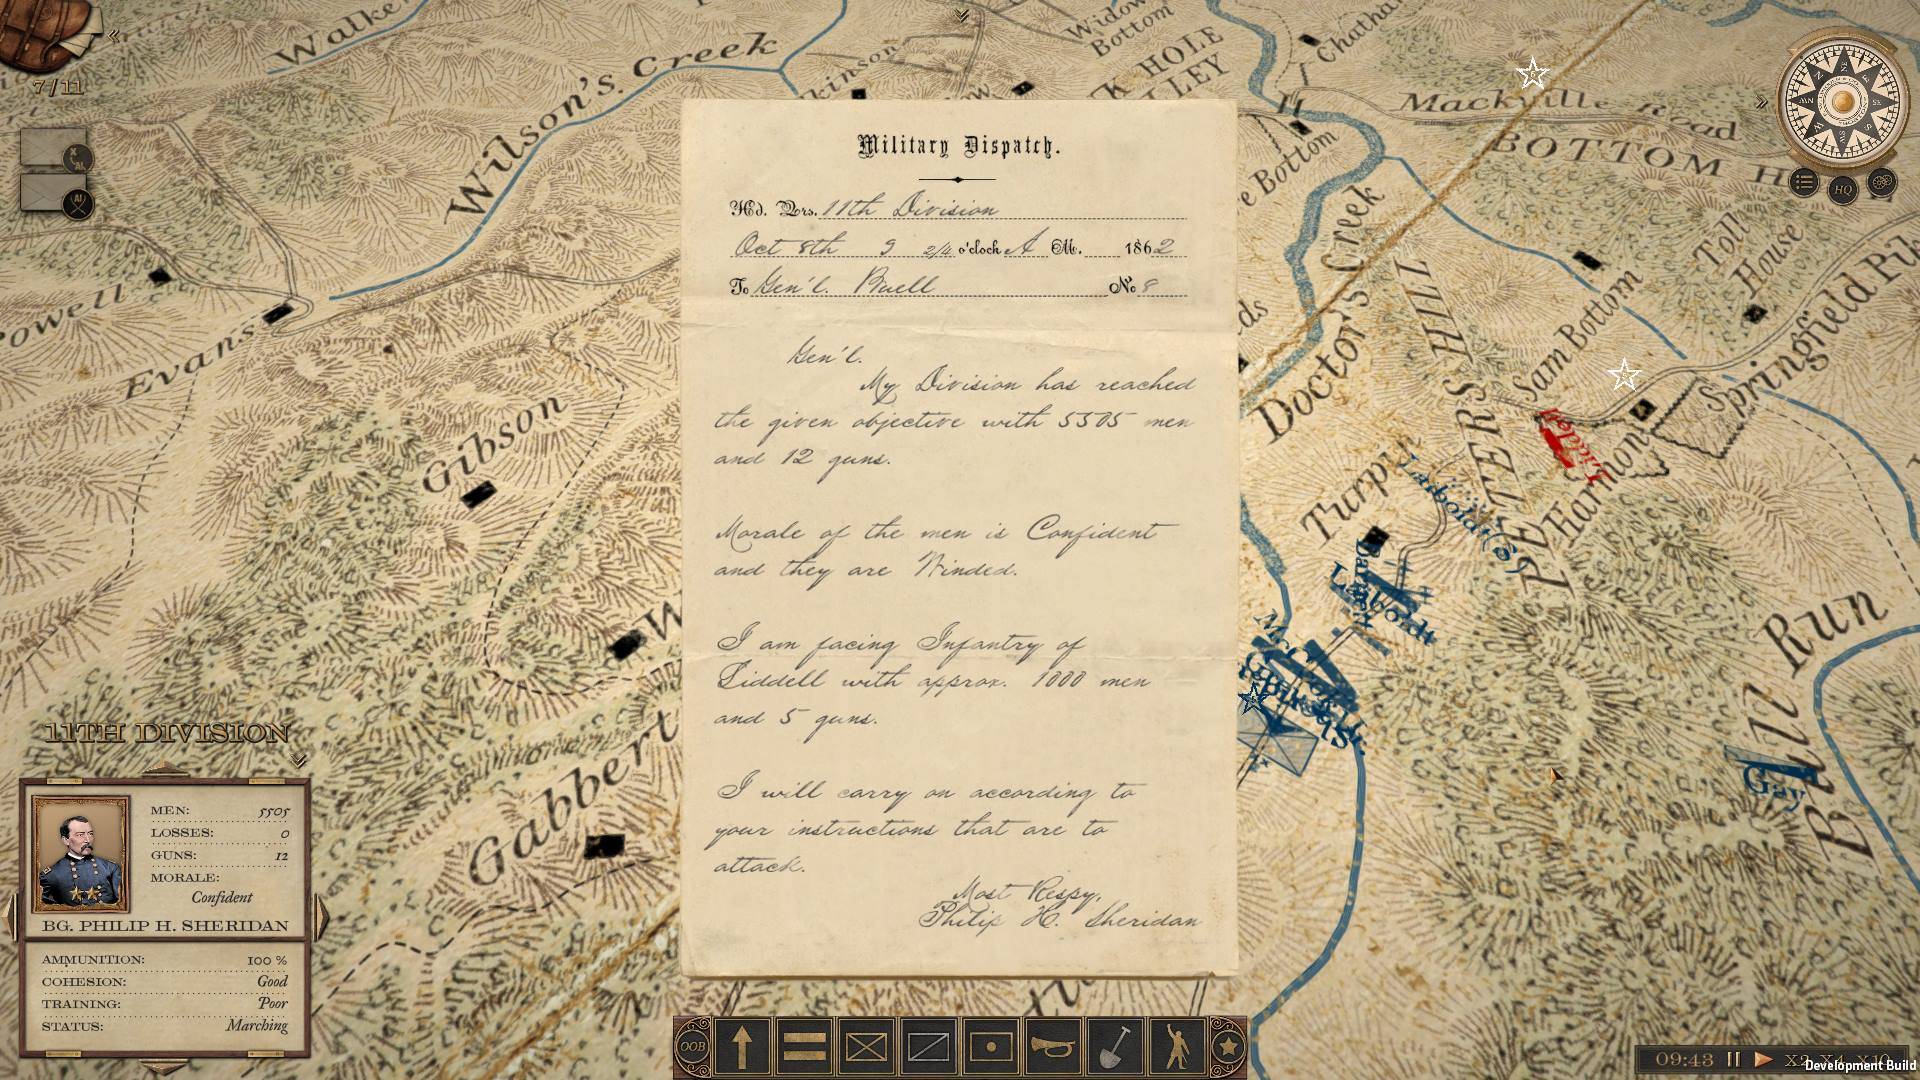 Walke
Wilson's Creek
kinson
Widow
Bottom
K HOLE
LLEY
Chatha
Mackville Road
BOTTOM H
7/11
Military Dispatch.
Hd. Qrs. 11th Division
Oct 8th 9 2/4 o'clock A M. 1862
To Gen'l. Buell No 8
Gen'l.
My Division has reached
the given objective with 5505 men
and 12 guns.
Morale of the men is Confident
and they are Winded.
I am facing Infantry of
Liddell with approx. 1000 men
and 5 guns.
I will carry on according to
your instructions that are to
attack.
Most Respy,
Philip H. Sheridan
e Bottom
Doctor's Creek
PETERS HILL
Sam Bottom
Toll
House
Springfield Pik
HQ
Powell
Evans
Gibson
Gabbert
Turpin
Harmon
Liddell
Laiboldt(S)
Laiboldt
Barnett
Gay
Bull Run
11TH DIVISION
MEN: 5505
LOSSES: 0
GUNS: 12
MORALE:
Confident
BG. PHILIP H. SHERIDAN
AMMUNITION: 100 %
COHESION: Good
TRAINING: Poor
STATUS: Marching
OOB
09:43 X2 X4 X10
Development Build